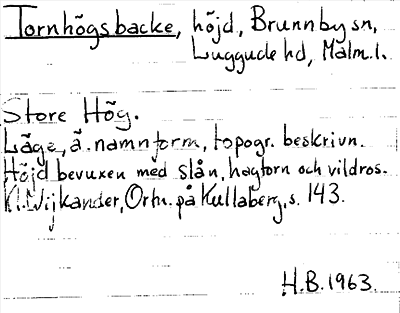 Tornhögsbacke, höjd, Brunnby sn,
Luggude hd, Malm.l.
Store Hög.
Läge, ä. namnform, topogr. beskrivn.
Höjd bevuxen med slån, hagtorn och vildros.
Wijkander, Ortn. på Kullaberg, s. 143.
H.B. 1963.